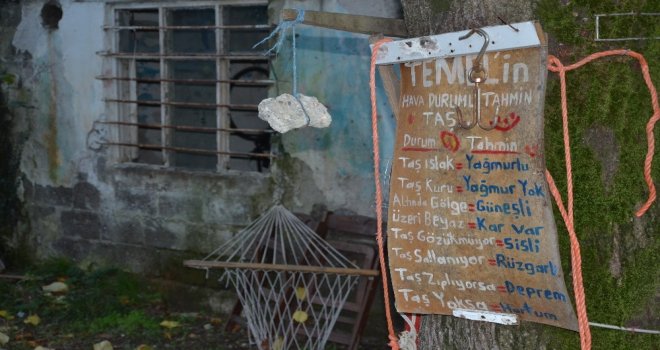 TEMEL'in
HAVA DURUMU TAHMİN
TAŞI
Durum Tahmin
Taş ıslak = Yağmurlu
Taş Kuru = Yağmur Yok
Altında Gölge = Güneşli
Üzeri Beyaz = Kar var
Taş Gözükmüyor = Sisli
Taş Sallanıyor = Rüzgarlı
Taş Zıplıyorsa = Deprem
Taş Yoksa = Hortum